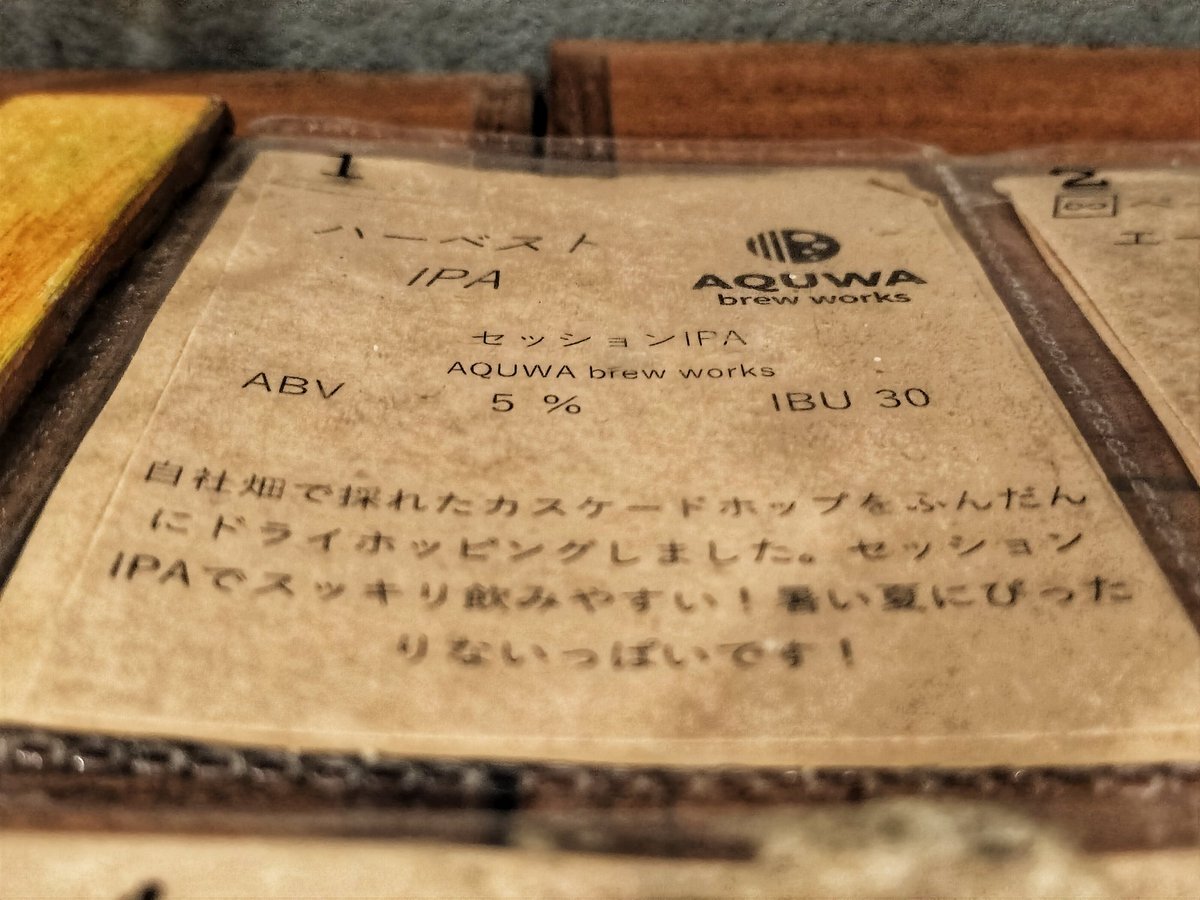 1
ハーベスト
IPA
AQUWA
brew works
セッションIPA
AQUWA brew works
ABV 5 % IBU 30
自社畑で採れたカスケードホップをふんだん
にドライホッピングしました。セッション
IPAでスッキリ飲みやすい！暑い夏にぴった
りないっぱいです！
2
エー